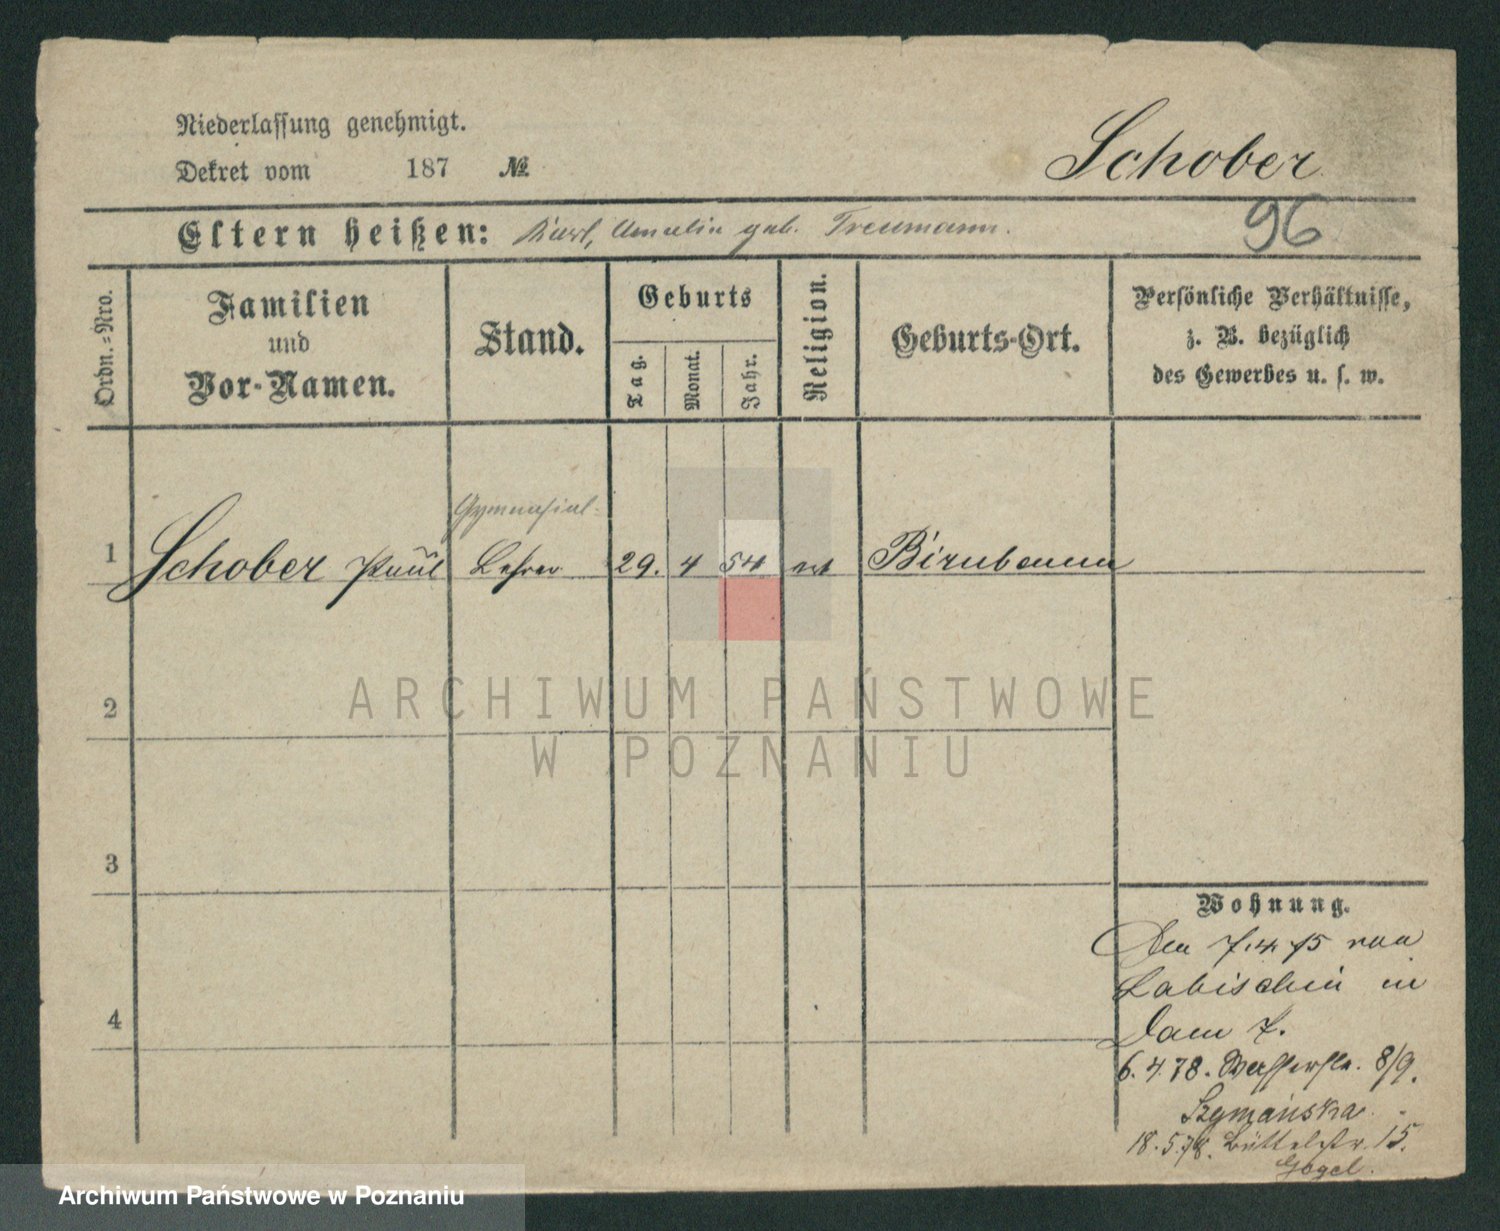 Niederlassung genehmigt.
Dekret vom 187 №
Schober
96
Eltern heißen: Karl, Amalie geb. Treumann.
Ordn.-Nro.
Familien
und
Vor-Namen.
Stand.
Geburts
Tag.
Monat.
Jahr.
Religion.
Geburts-Ort.
Persönliche Verhältnisse,
z. B. bezüglich
des Gewerbes u. s. w.
Gymnasial-
1 Schober Paul Lehrer 29. 4 54 Birnbaum
ARCHIWUM PAŃSTWOWE
2
W POZNANIU
3
Wohnung.
Den 7.4.75 von
Labischin in
4
Dom 7.
6.4.78. Wasserstr. 8/9.
Szymańska
18.5.78. Büttelstr. 15.
Gogel.
Archiwum Państwowe w Poznaniu